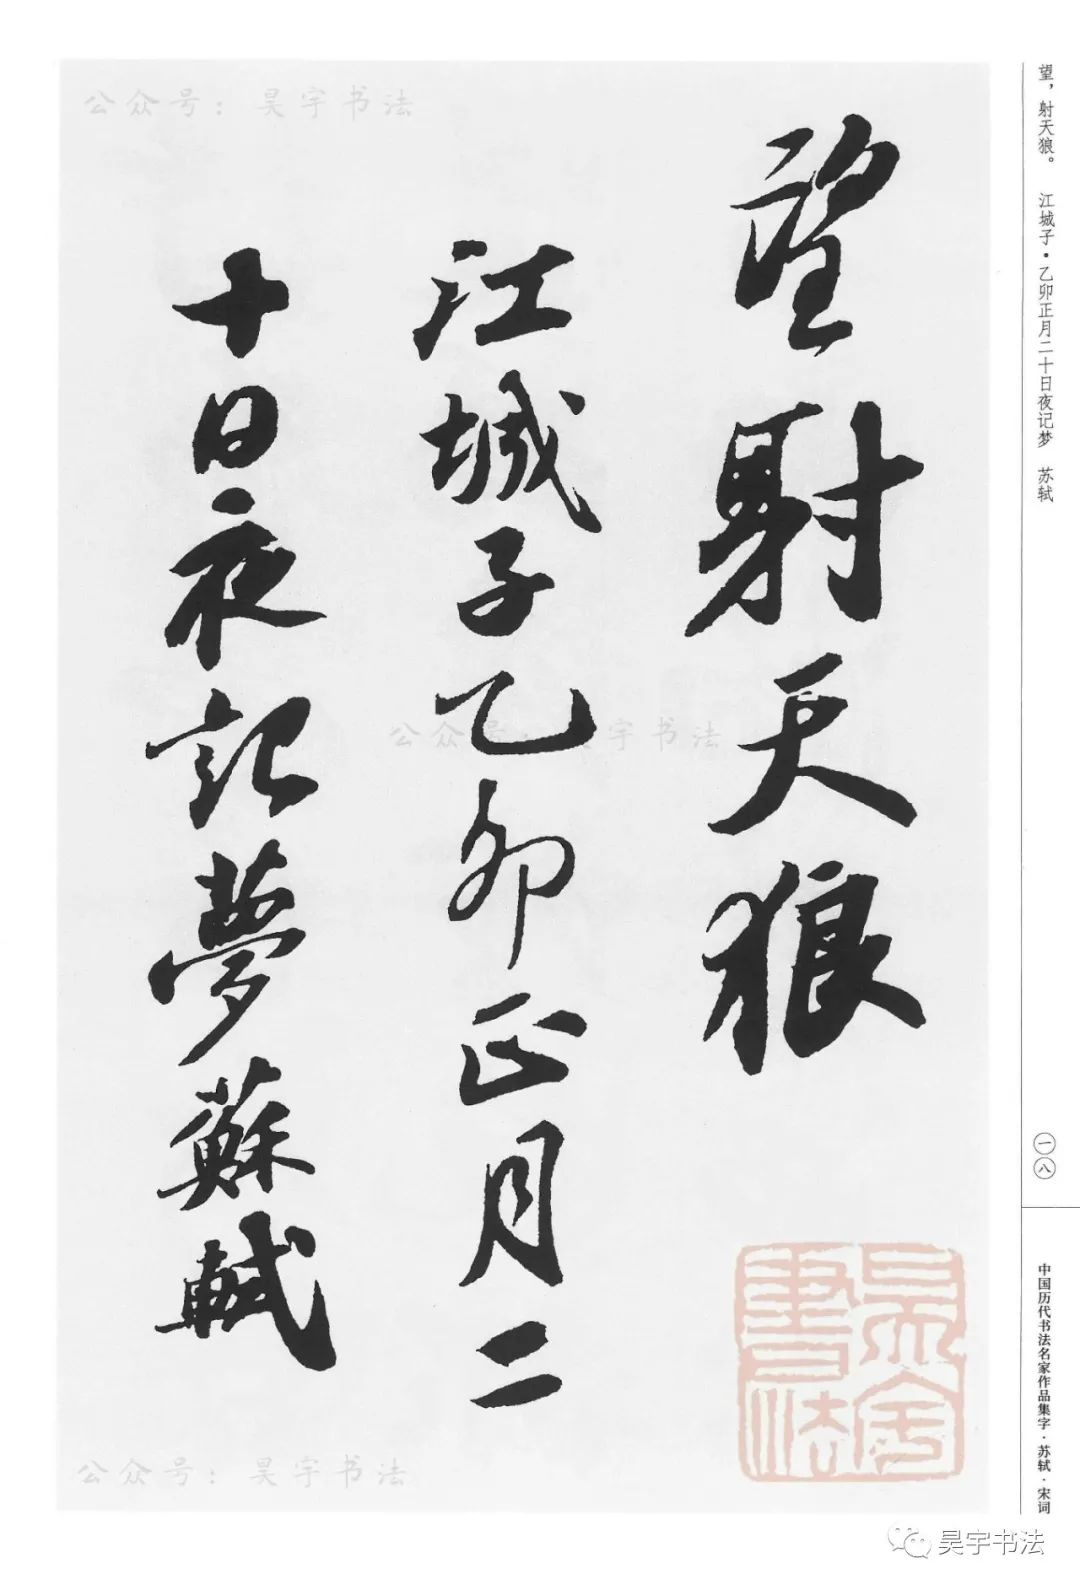 望射天狼
江城子乙卯正月二
十日夜記夢蘇軾
望，射天狼。 江城子·乙卯正月二十日夜记梦 苏轼
一八
中国历代书法名家作品集字·苏轼·宋词
公众号：昊宇书法
公众号：昊宇书法
公众号：昊宇书法
昊宇書法
昊宇书法